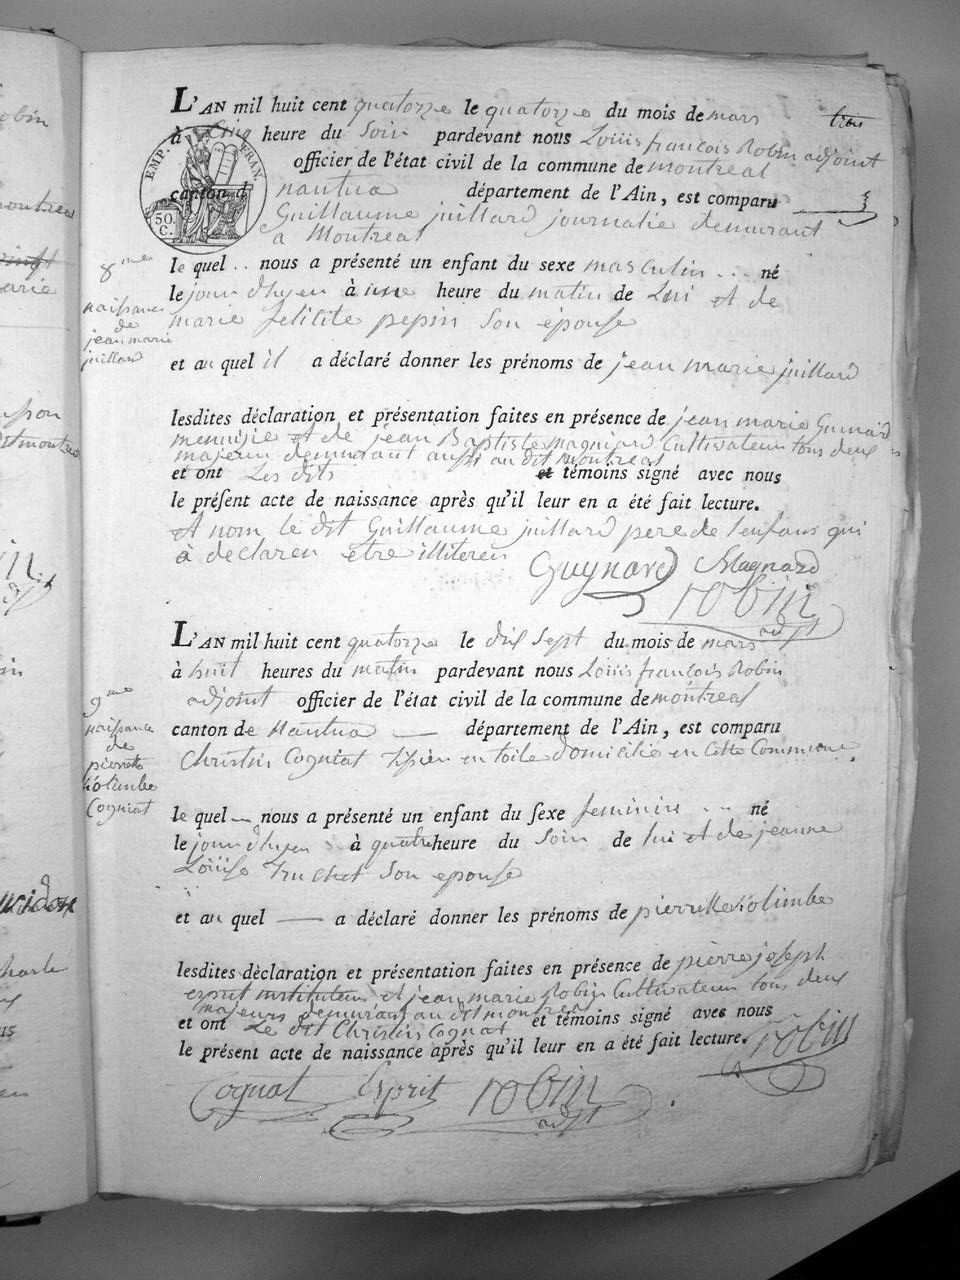 L'AN mil huit cent quatorze le quatorze du mois de mars
à Cinq heure du Soir pardevant nous Loüis françois Robin adjoint
EMP. FRAN.
50. C.
officier de l'état civil de la commune de montreal
canton d nantua département de l'Ain, est comparu
Guillaume juillard journalie demeurant
a Montreal
le quel .. nous a présenté un enfant du sexe masculin ... né
le jour d'huy à une heure du matin de Lui et de
marie felicite pepin son épouse
8me
naissance
de
jean marie
juillard
et au quel il a déclaré donner les prénoms de jean marie juillard
lesdites déclaration et présentation faites en présence de jean marie Guinard
menuisie et de jean Baptiste magniard Cultivateur tous deux
majeur demeurant aussi au dit montreal
et ont Les dits et témoins signé avec nous
le présent acte de naissance après qu'il leur en a été fait lecture.
et nom le dit Guillaume juillard pere de l'enfant qui
à declarer etre illiteren
Guynard Magnard
robin
adjt
L'AN mil huit cent quatorze le dix sept du mois de mars
à huit heures du matin pardevant nous Loüis françois Robin
adjoint officier de l'état civil de la commune de montreal
canton de Nantua département de l'Ain, est comparu
Christin Cogniat tissier en toile domicilié en Cette Commune.
9me
naissance
de
pierrette
kolimbe
Cogniat
le quel nous a présenté un enfant du sexe feminin ... né
le jour d'hyer à quatre heure du Soir de lui et de jeanne
Loüise Truchet son epouse
et au quel a déclaré donner les prénoms de pierrette kolimbe
lesdites déclaration et présentation faites en présence de pierre joseph
esprit instituteur et jean marie Robin Cultivateur tous deux
majeurs demeurant au dit montreal
et ont Le dit Christin Cognat et témoins signé avec nous
le présent acte de naissance après qu'il leur en a été fait lecture.
robin
Cognat Esprit robin
adjt